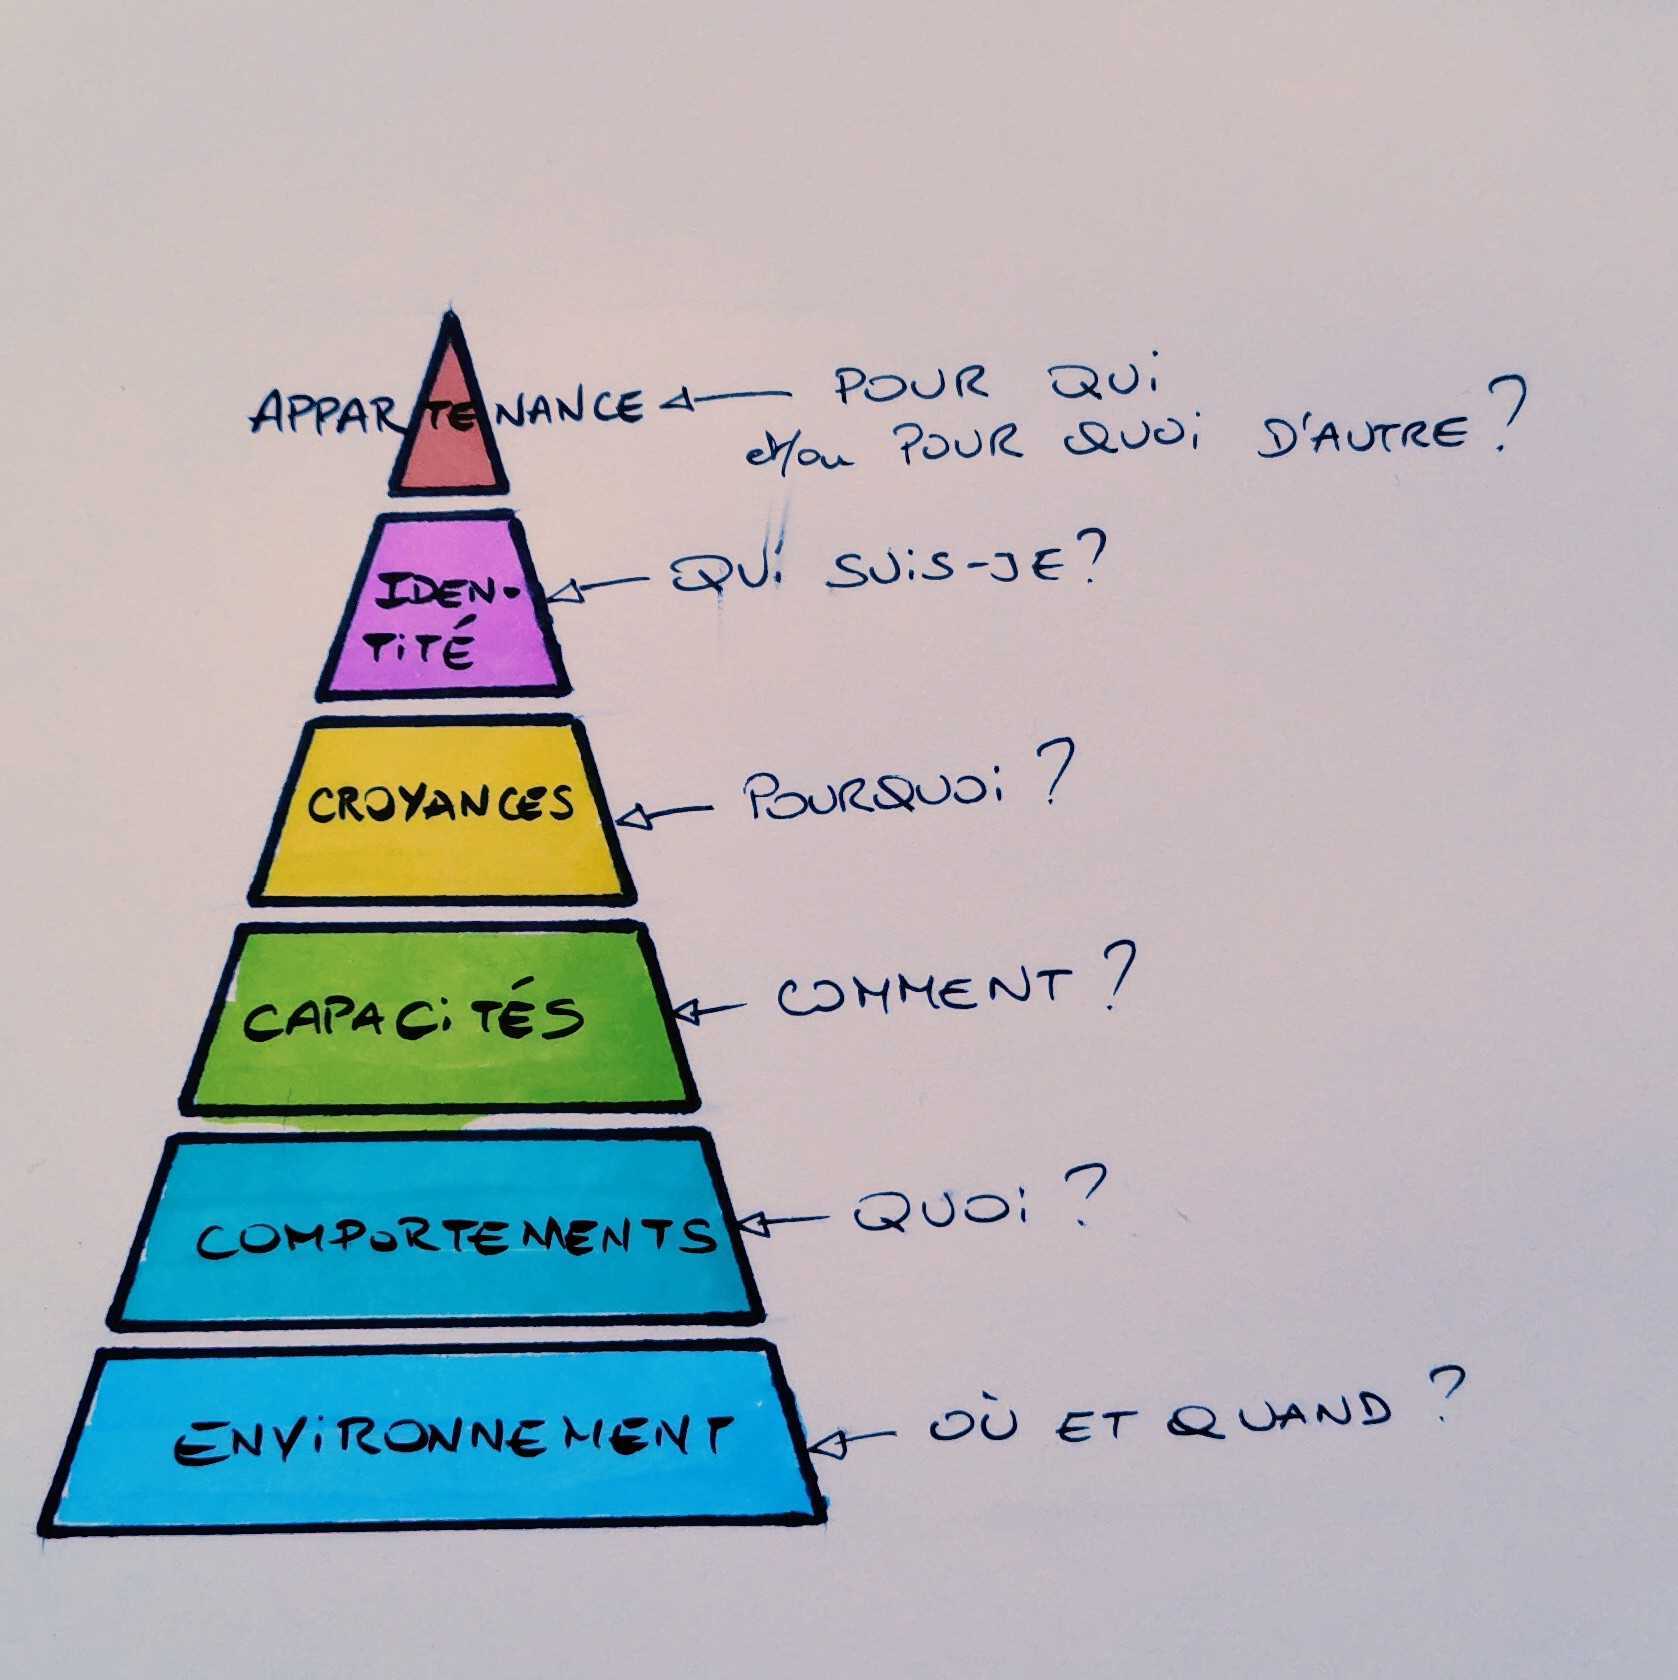 APPARTENANCE
POUR QUI
et/ou POUR QUOI D'AUTRE ?
IDEN-
TITÉ
QUI SUIS-JE ?
CROYANCES
POURQUOI ?
CAPACITÉS
COMMENT ?
COMPORTEMENTS
QUOI ?
ENVIRONNEMENT
OÙ ET QUAND ?